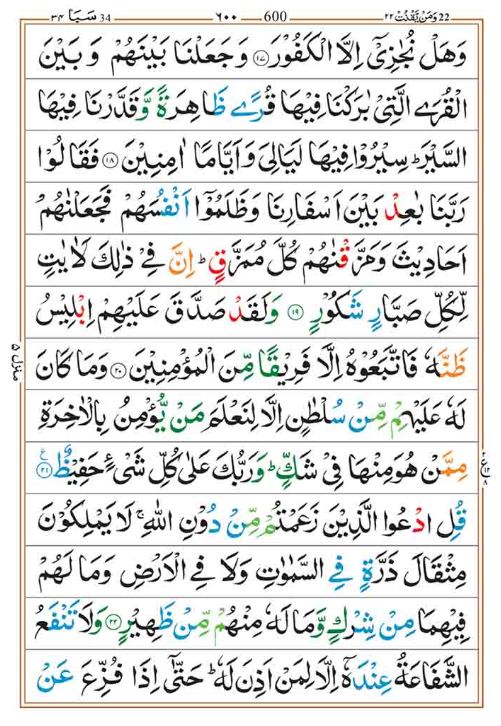 22 وَمَنْ يَّقْنُتْ ٢٢ 600 ٦٠٠ 34 سَبَا ٣٤
وَهَلْ نُجٰزِیْۤ اِلَّا الْكَفُوْرَ ﴿١٧﴾ وَجَعَلْنَا بَیْنَهُمْ وَ بَیْنَ
الْقُرَی الَّتِیْ بٰرَكْنَا فِیْهَا قُرًی ظَاهِرَةً وَّقَدَّرْنَا فِیْهَا
السَّیْرَ ؕ سِیْرُوْا فِیْهَا لَیَالِیَ وَاَیَّامًا اٰمِنِیْنَ ﴿١٨﴾ فَقَالُوْا
رَبَّنَا بٰعِدْ بَیْنَ اَسْفَارِنَا وَظَلَمُوْۤا اَنْفُسَهُمْ فَجَعَلْنٰهُمْ
اَحَادِیْثَ وَمَزَّقْنٰهُمْ كُلَّ مُمَزَّقٍ ؕ اِنَّ فِیْ ذٰلِكَ لَاٰیٰتٍ
لِّكُلِّ صَبَّارٍ شَكُوْرٍ ﴿١٩﴾ وَلَقَدْ صَدَّقَ عَلَیْهِمْ اِبْلِیْسُ
ظَنَّهٗ فَاتَّبَعُوْهُ اِلَّا فَرِیْقًا مِّنَ الْمُؤْمِنِیْنَ ﴿٢٠﴾ وَمَا كَانَ
لَهٗ عَلَیْهِمْ مِّنْ سُلْطٰنٍ اِلَّا لِنَعْلَمَ مَنْ یُّؤْمِنُ بِالْاٰخِرَةِ
مِمَّنْ هُوَ مِنْهَا فِیْ شَكٍّ ؕ وَرَبُّكَ عَلٰی كُلِّ شَیْءٍ حَفِیْظٌ ﴿٢١﴾
قُلِ ادْعُوا الَّذِیْنَ زَعَمْتُمْ مِّنْ دُوْنِ اللّٰهِ ۚ لَا یَمْلِكُوْنَ
مِثْقَالَ ذَرَّةٍ فِی السَّمٰوٰتِ وَلَا فِی الْاَرْضِ وَمَا لَهُمْ
فِیْهِمَا مِنْ شِرْكٍ وَّمَا لَهٗ مِنْهُمْ مِّنْ ظَهِیْرٍ ﴿٢٢﴾ وَلَا تَنْفَعُ
الشَّفَاعَةُ عِنْدَهٗۤ اِلَّا لِمَنْ اَذِنَ لَهٗ ؕ حَتّٰۤی اِذَا فُزِّعَ عَنْ
منزل ٥